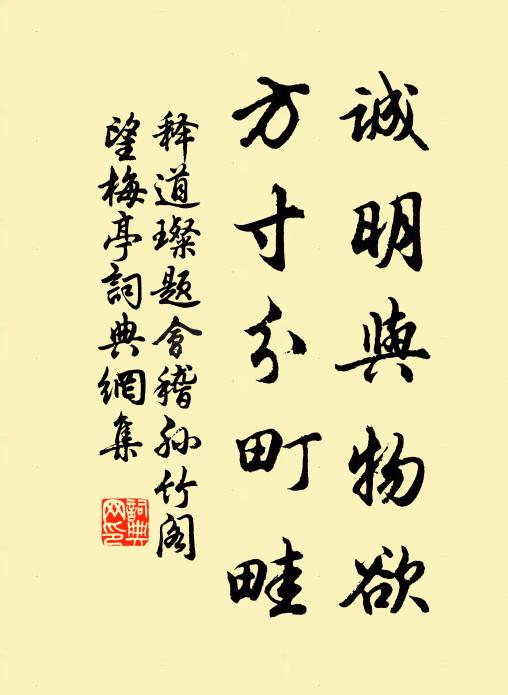 誠明與物欲
方寸分町畦
释道璨题會稽孙竹阁
望梅亭詞典網集
詞典
网印